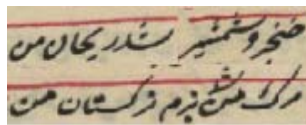 خنجر و شمشیر شد ریحان من
مرک من شد بزم نرکستان من